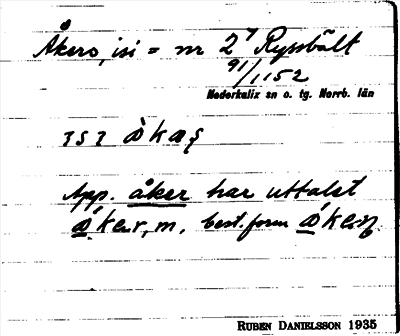 Åkers, isi = nr 2⁷ Ryssbält
91/1152
Nederkalix sn o. tg. Norrb. län
App. åker har uttalet
m. best. form
RUBEN DANIELSSON 1935